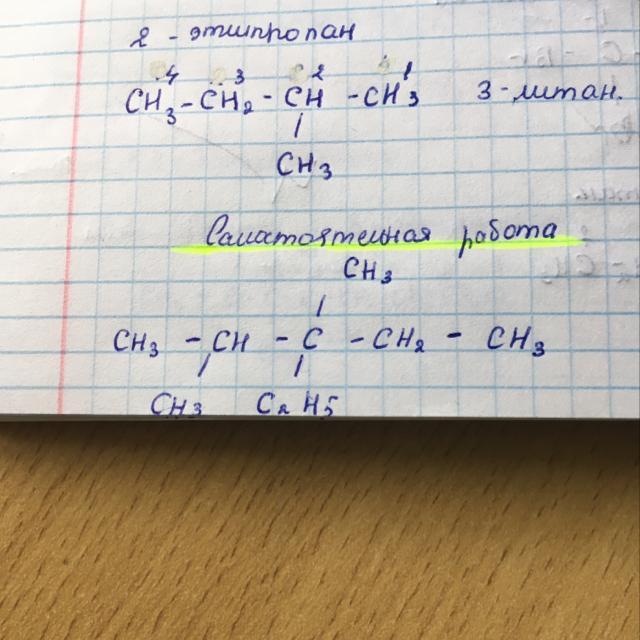 2 - этилпропан
4 3 2 1
CH3 - CH2 - CH - CH3 3-
CH3
Самостоятельная работа
CH3
CH3 - CH - C - CH2 - CH3
CH3 C2H5